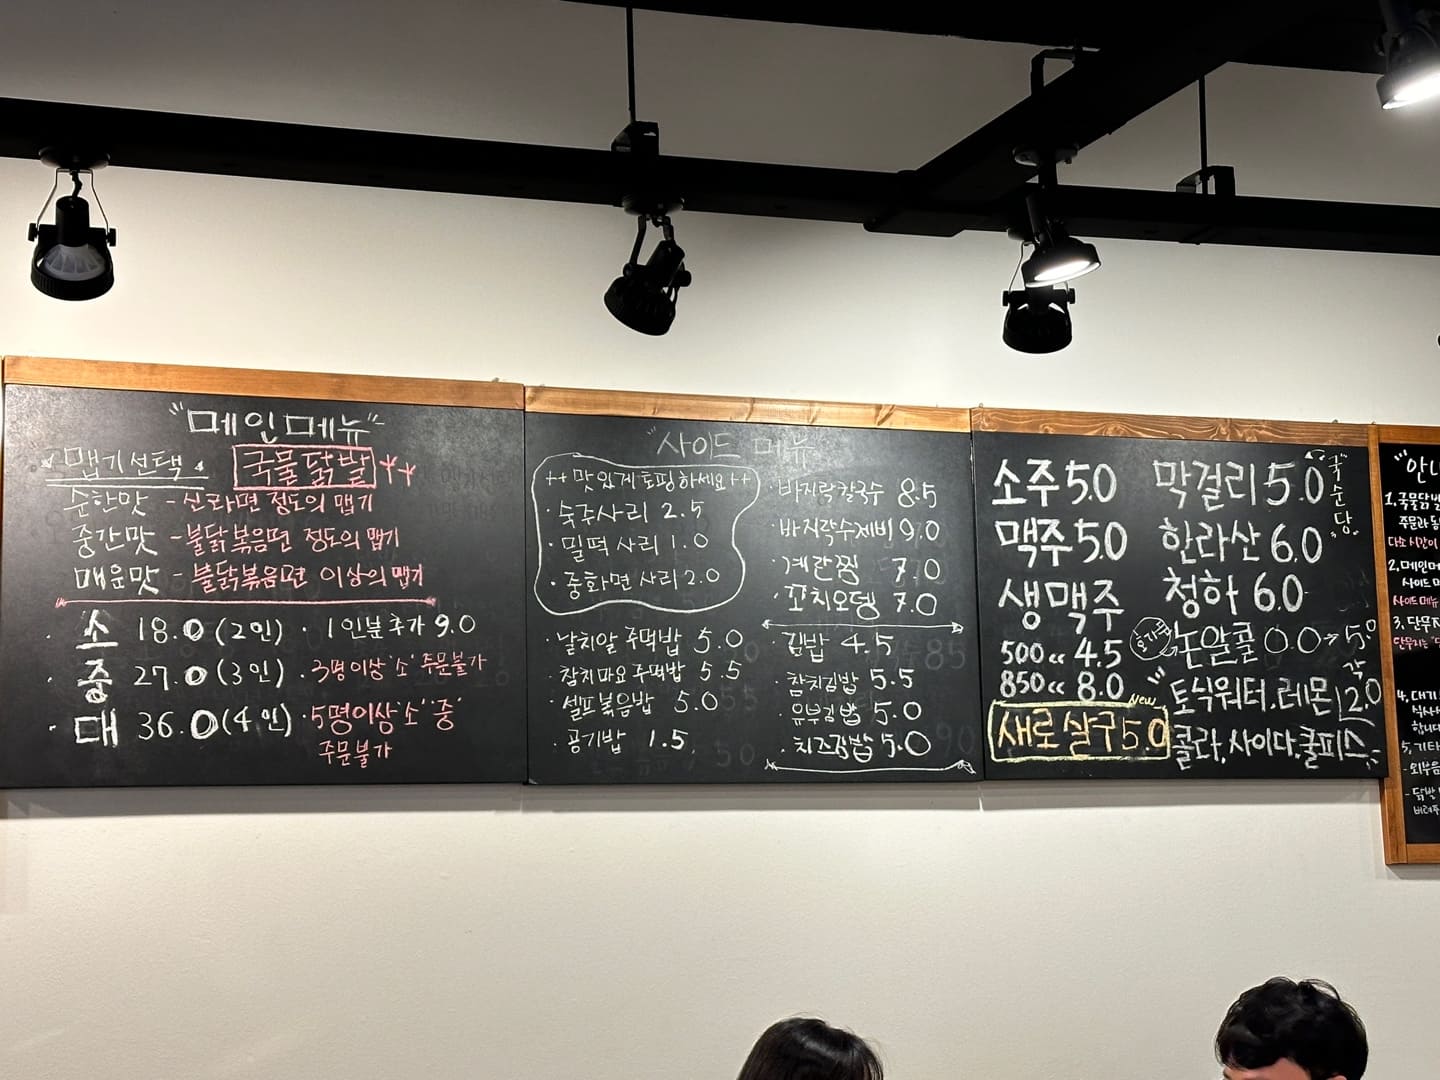 "메인메뉴"
맵기선택 국물닭발
순한맛 - 신라면 정도의 맵기
중간맛 - 불닭볶음면 정도의 맵기
매운맛 - 불닭볶음면 이상의 맵기
· 소 18.0 (2인) · 1인분추가 9.0
· 중 27.0 (3인) · 3명이상 '소' 주문불가
· 대 36.0 (4인) · 5명이상 '소' '중'
주문불가
"사이드 메뉴
++ 맛있게 토핑하세요 ++
· 숙주사리 2.5
· 밀떡 사리 1.0
· 중화면 사리 2.0
· 날치알 주먹밥 5.0
· 참치마요주먹밥 5.5
· 셀프볶음밥 5.0
· 공기밥 1.5
· 바지락칼국수 8.5
· 바지락수제비 9.0
· 계란찜 7.0
· 꼬치오뎅 7.0
· 김밥 4.5
· 참치김밥 5.5
· 유부김밥 5.0
· 치즈김밥 5.0
소주 5.0
맥주 5.0
생맥주
500cc 4.5
850cc 8.0
New
새로살구 5.0
막걸리 5.0 국순당
한라산 6.0
청하 6.0
논알콜 0.0 → 5.0
토닉워터.레몬 각 2.0
콜라.사이다.쿨피스
"안내
1. 국물닭발
주문과 동
다소 시간이
2. 메인메
사이드 메
사이드메뉴
3. 단무지
단무지는
4. 대기
식사시
합니다
5. 기타
- 외부음
- 닭발
버려주